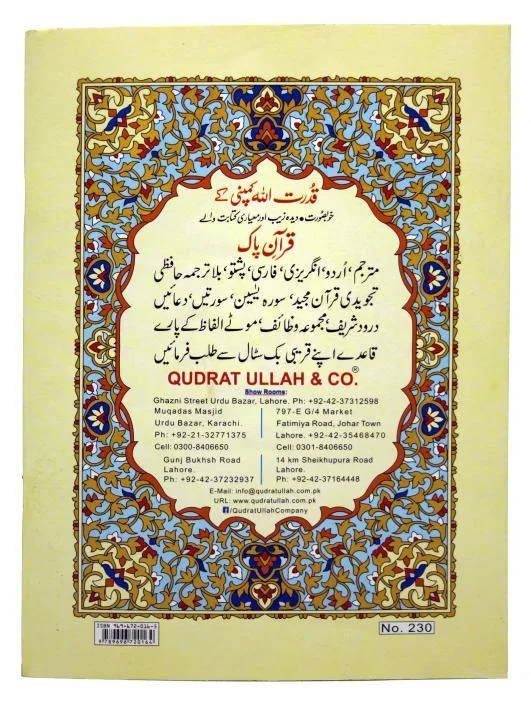 قدرت اللہ کمپنی کے
خوبصورت • دیدہ زیب اور معیاری کتابت والے
قرآنِ پاک
مترجم، اُردو، انگریزی، فارسی، پشتو، بلا ترجمہ حافظی
تجویدی قرآن مجید، سورہ یٰسین، سورتیں، دعائیں
درود شریف، مجموعہ وظائف، موٹے الفاظ کے پارے
قاعدے اپنے قریبی بک سٹال سے طلب فرمائیں
QUDRAT ULLAH & CO.®
Show Rooms:
Ghazni Street Urdu Bazar, Lahore. Ph: +92-42-37312598
Muqadas Masjid
Urdu Bazar, Karachi.
Ph: +92-21-32771375
Cell: 0300-8406650
797-E G/4 Market
Fatimiya Road, Johar Town
Lahore. +92-42-35468470
Cell: 0301-8406650
Gunj Bukhsh Road
Lahore.
Ph: +92-42-37232937
14 km Sheikhupura Road
Lahore.
Ph: +92-42-37164448
E-Mail: info@qudratullah.com.pk
URL: www.qudratullah.com.pk
f/QudratUllahCompany
ISBN 969-672-016-5
9 789696 720164
No. 230